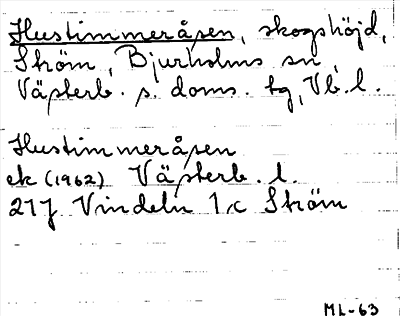 Hustimmeråsen, skogshöjd,
Ström, Bjurholms sn,
Västerb. s. doms. tg, Vb. l.
Hustimmeråsen
ek (1962) Västerb. l.
21J Vindeln 1c Ström
ML-63